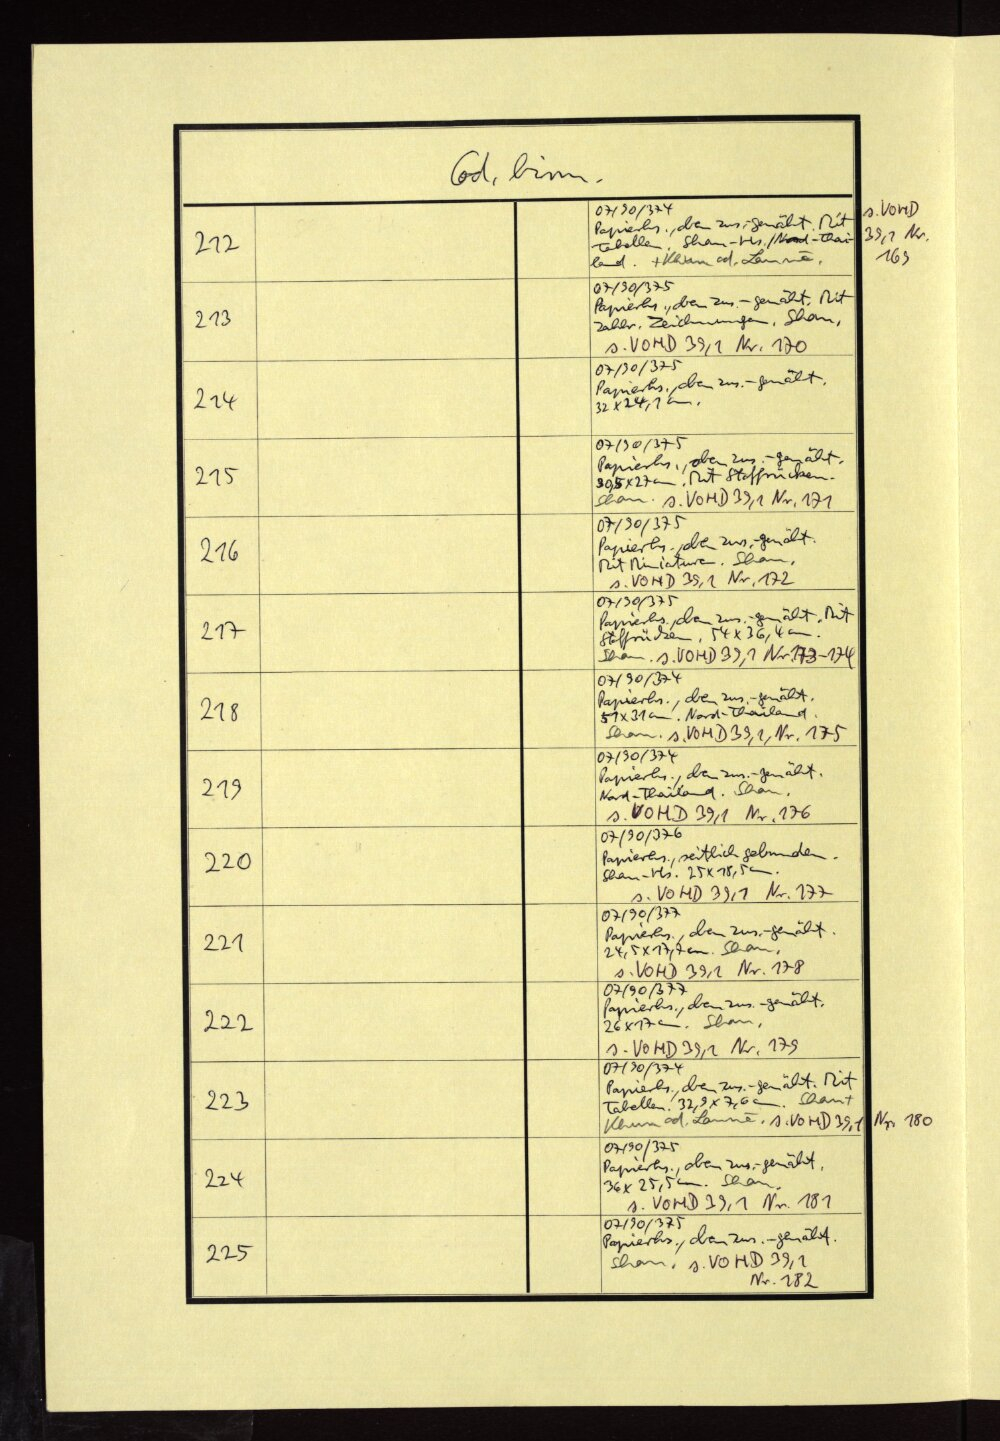 Cod. birm.
212
07/90/374
Papierhs., oben zus.-genäht. Mit
Tabellen. Shan-Hs./Nord-Thai-
land. + Khün od. Lanna.
s. VOHD
39,1 Nr.
169
213
07/90/375
Papierhs., oben zus.-genäht. Mit
zahlr. Zeichnungen. Shan.
s. VOHD 39,1 Nr. 170
214
07/90/375
Papierhs., oben zus.-genäht.
32 x 24,1 cm.
215
07/90/375
Papierhs., oben zus.-genäht.
30,5 x 27 cm. Mit Stoffrücken.
Shan. s. VOHD 39,1 Nr. 171
216
07/90/375
Papierhs., oben zus.-genäht.
Mit Miniaturen. Shan.
s. VOHD 39,1 Nr. 172
217
07/90/375
Papierhs., oben zus.-genäht. Mit
Stoffrücken. 54 x 36,4 cm.
Shan. s. VOHD 39,1 Nr. 173-174
218
07/90/374
Papierhs., oben zus.-genäht.
51 x 31 cm. Nord-Thailand.
Shan. s. VOHD 39,1, Nr. 175
219
07/90/374
Papierhs., oben zus.-genäht.
Nord-Thailand. Shan.
s. VOHD 39,1 Nr. 176
220
07/90/376
Papierhs., seitlich gebunden.
Shan-Hs. 25 x 18,5 cm.
s. VOHD 39,1 Nr. 177
221
07/90/377
Papierhs., oben zus.-genäht.
24,5 x 17,7 cm. Shan.
s. VOHD 39,1 Nr. 178
222
07/90/377
Papierhs., oben zus.-genäht.
26 x 17 cm. Shan.
s. VOHD 39,1 Nr. 179
223
07/90/374
Papierhs., oben zus.-genäht. Mit
Tabellen. 32,9 x 7,6 cm. Shan +
Khün od. Lanna. s. VOHD 39,1 Nr. 180
224
07/90/375
Papierhs., oben zus.-genäht.
36 x 25,5 cm. Shan.
s. VOHD 39,1 Nr. 181
225
07/90/375
Papierhs., oben zus.-genäht.
Shan. s. VOHD 39,1
Nr. 182